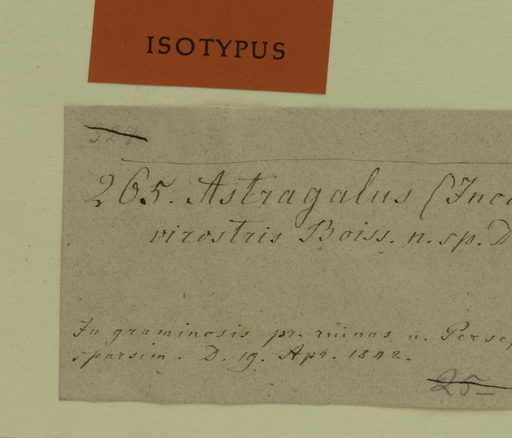 ISOTYPUS
265. Astragalus (Inc
virostris Boiss. n. sp. D
In graminosis pr. ruinas u. Persep
sparsim. D. 19. Apr. 1842.
25